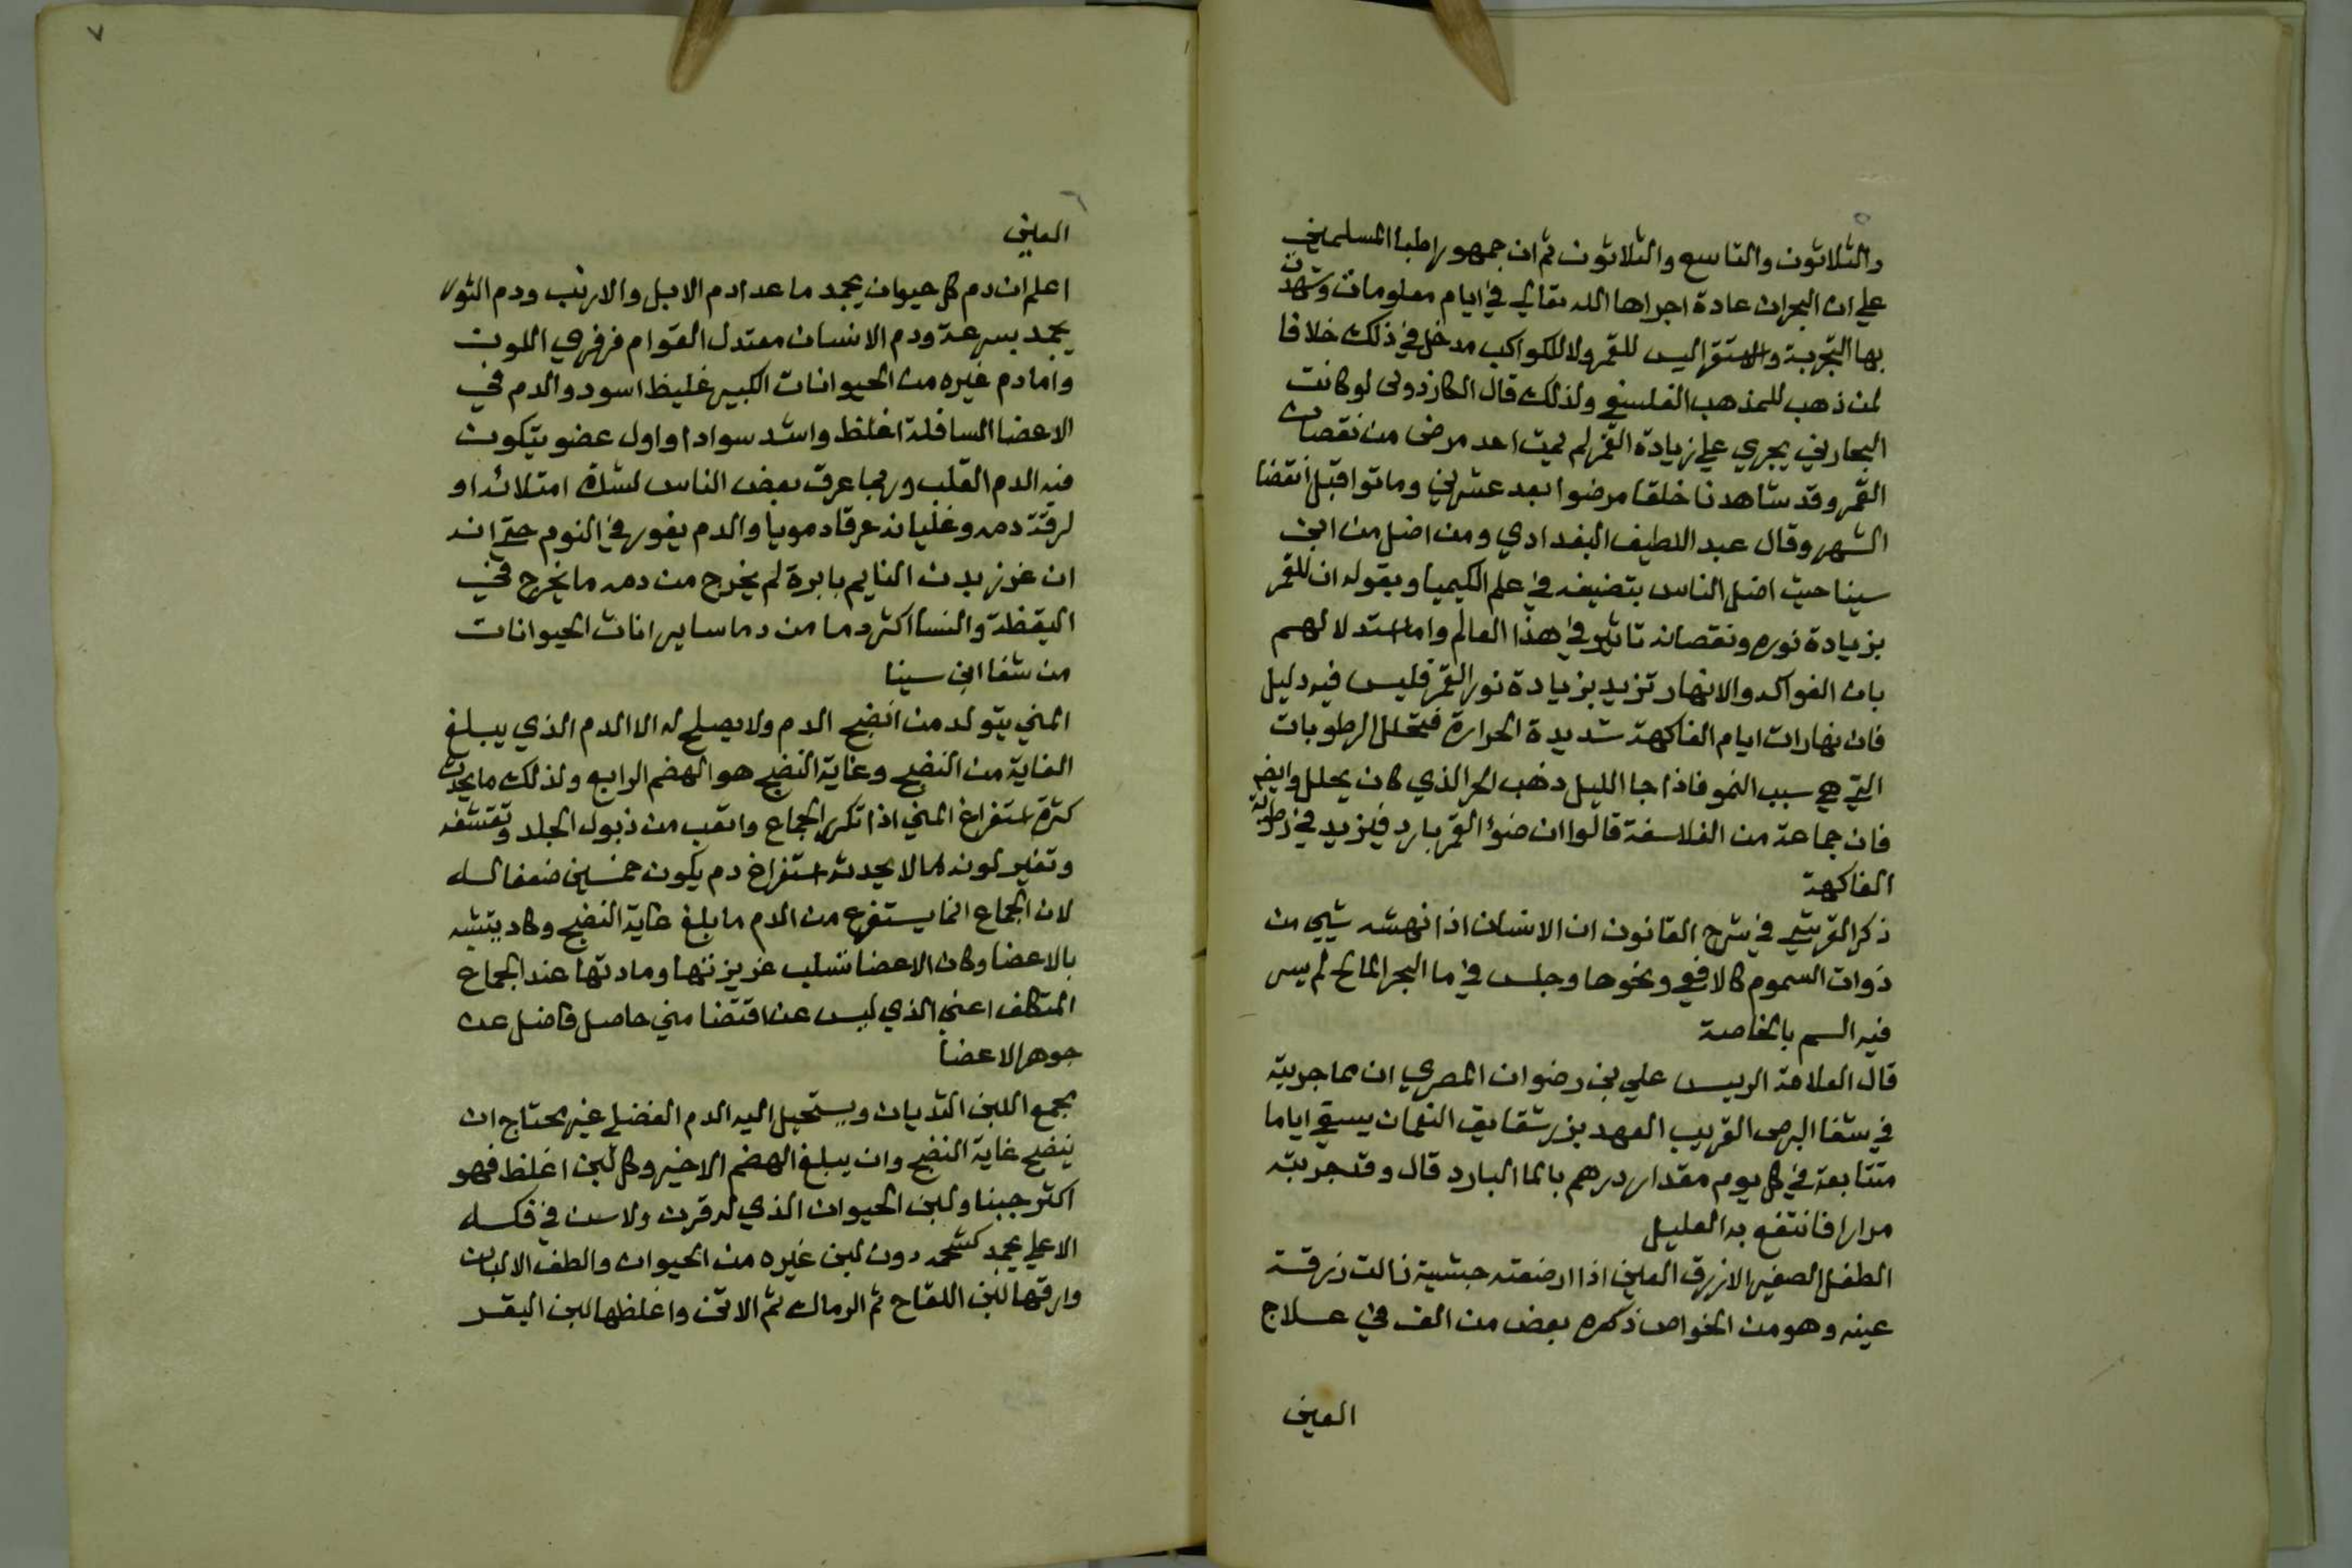 ٥
والثلاثون والتاسع والثلاثون ثم ان جمهور اطبا المسلمين
علي ان البحران عادة اجراها الله تعالي في ايام معلومات وشهدت
بها التجربة والاستقرا ليس للقمر ولا للكواكب مدخل في ذلك خلافا
لمن ذهب للمذهب الفلسفي ولذلك قال الكازروني لو كانت
البحارين يجري علي زيادة القمر لم يمت احد مرض من نقصان
القمر وقد شاهدنا خلقا مرضوا بعد عشرين وماتوا قبل انقضا
الشهر وقال عبد اللطيف البغدادي ومن اضل من ابن
سينا حيث اضل الناس بتصنيفه في علم الكيميا وبقوله ان للقمر
بزيادة نوره ونقصانه تاثير في هذا العالم واما استدلالهم
بان الفواكه والانهار تزيد بزيادة نور القمر فليس فيه دليل
فان نهارات ايام الفاكهة شديدة الحرارة فتحلل الرطوبات
التي هي سبب النمو فاذا جا الليل ذهب الحر الذي كان يحلل وايضا
فان جماعة من الفلاسفة قالوا ان ضؤ القمر بارد فيزيد في رطوبة
الفاكهة
ذكر القرشي في شرح القانون ان الانسان اذا نهشه شيي من
ذوات السموم كالافعي ونحوها وجلس في ما البحر المالح لم يسر
فيه السم بالخاصة
قال العلامة الرييس علي بن رضوان المصري ان مما جربته
في شفا البرص القريب العهد بزر شقايق النعمان يسقي اياما
متتابعة في كل يوم مقدار درهم بالما البارد قال وقد جربته
مرارا فانتفع به العليل
الطفل الصغير الازرق العين اذا ارضعته حبشية زالت زرقة
عينه وهو من الخواص ذكره بعض من الف في علاج
العين
٧
٦
العين
اعلم ان دم كل حيوان يجمد ما عدا دم الابل والارنب ودم الثور
يجمد بسرعة ودم الانسان معتدل القوام فرفري اللون
واما دم غيره من الحيوانات الكبير غليظ اسود والدم في
الاعضا السافلة اغلظ واشد سوادا واول عضو يتكون
فيه الدم القلب وربما عرق بعض الناس لشدة امتلائه او
لرقة دمه وغليانه عرقا دمويا والدم يغور في النوم حتي انه
ان غرز بدن النايم بابرة لم يخرج من دمه ما يخرج في
اليقظة والنسا اكثر دما من دما ساير اناث الحيوانات
من شفا ابن سينا
المني يتولد من انضج الدم ولا يصلح له الا الدم الذي يبلغ
الغاية من النضج وغاية النضج هو الهضم الرابع ولذلك ما يحدث
كثرة استفراغ المني اذا تكرر الجماع واتعب من ذبول الجلد وتقشفه
وتغير لونه ما لا يحدث استفراغ دم يكون خمسين ضعفا له
لان الجماع انما يستفرغ من الدم ما بلغ غاية النضج وكاد يتشبه
بالاعضا وكان الاعضا تسلب غريزتها ومادتها عند الجماع
المتكلف اعني الذي ليس عن اقتضا مني حاصل فاضل عن
جوهر الاعضا
مجمع اللبن الثديان ويستحيل اليه الدم الفضلي غير محتاج ان
ينضج غاية النضج وان يبلغ الهضم الاخير وكل لبن اغلظ فهو
اكثر جبنا ولبن الحيوان الذي له قرن ولا سن في فكه
الاعلي يجمد كشحمه دون لبن غيره من الحيوان والطف الالبان
وارقها لبن اللقاح ثم الرماك ثم الاتن واغلظها لبن البقر